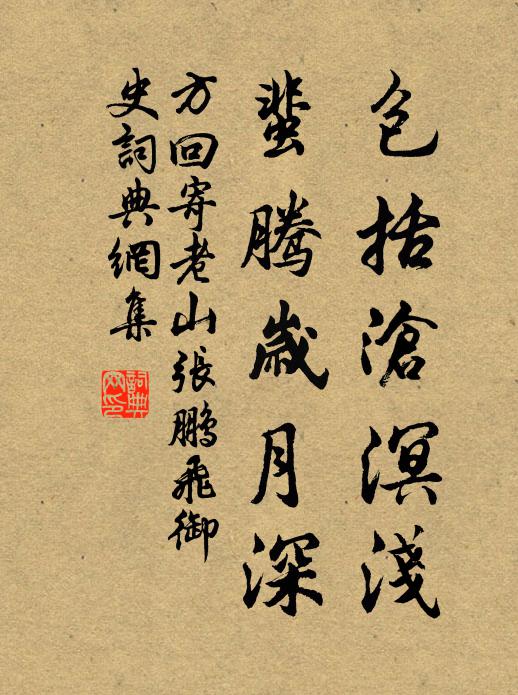 包括滄溟淺
蜚騰歲月深
方回寄老山張鵬飛御
史詞典網集
詞典
网印